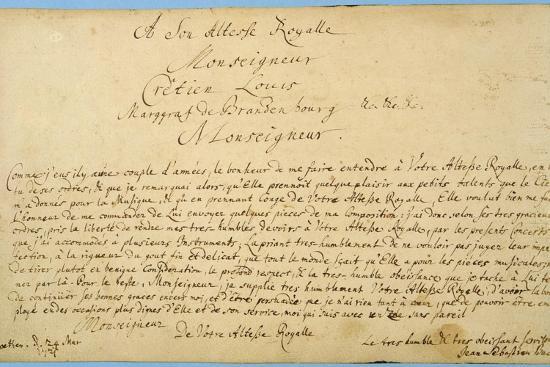 A Son Altesse Royalle
Monseigneur
Crétien Louis
Marggraf de Brandenbourg &c. &c. &c.
Monseigneur.
Comme j'eus il y a une couple d'années, le bonheur de me faire entendre à Votre Altesse Royalle, en
tu de ses ordres, & que je remarquai alors, qu'Elle prennoit quelque plaisir aux petits talents que le Cie
m'a donnés pour la Musique, & qu'en prennant Conge de Votre Altesse Royalle, Elle voulut bien me fai
l'honneur de me commander de Lui envoyer quelques pieces de ma Composition: j'ai donc selon ses tres gracieux
ordres, pris la liberté de rendre mes tres-humbles devoirs à Votre Altesse Royalle, par les presents Concerts
que j'ai accommodés à plusieurs Instruments; La priant tres-humblement de ne vouloir pas juger leur imper
fection, à la rigueur du gout fin et delicat, que tout le monde sçait qu'Elle a pour les pièces musicales;
de tirer plutot en benigne Consideration, le profond respect, & la tres-humble obeissance que je tache à Lui
ner par là. Pour le reste, Monseigneur, je supplie tres humblement Votre Altesse Royalle, d'avoir la bonté
de continuer ses bonnes graces envers moi, et d'être persuadée que je n'ai rien tant à cœur, que de pouvoir être em
ployé en des occasions plus dignes d'Elle et de son service, moi qui suis avec un zele sans pareil
Monseigneur
De Votre Altesse Royalle
Coethen. d. 24 Mar
1721
Le tres humble & tres obeissant serviteur
Jean Sebastien Bac